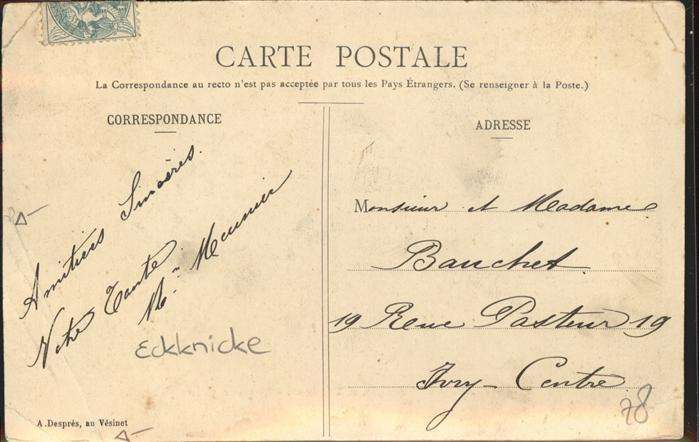 CARTE POSTALE
La Correspondance au recto n'est pas acceptée par tous les Pays Étrangers. (Se renseigner à la Poste.)
CORRESPONDANCE
Amitiers Sincères.
Votre Tante
M. Meunier
Eckknicke
A. Després, au Vésinet
ADRESSE
Monsieur et Madame
Bauchet
19 Rue Pasteur 19
Ivry-Centre
78